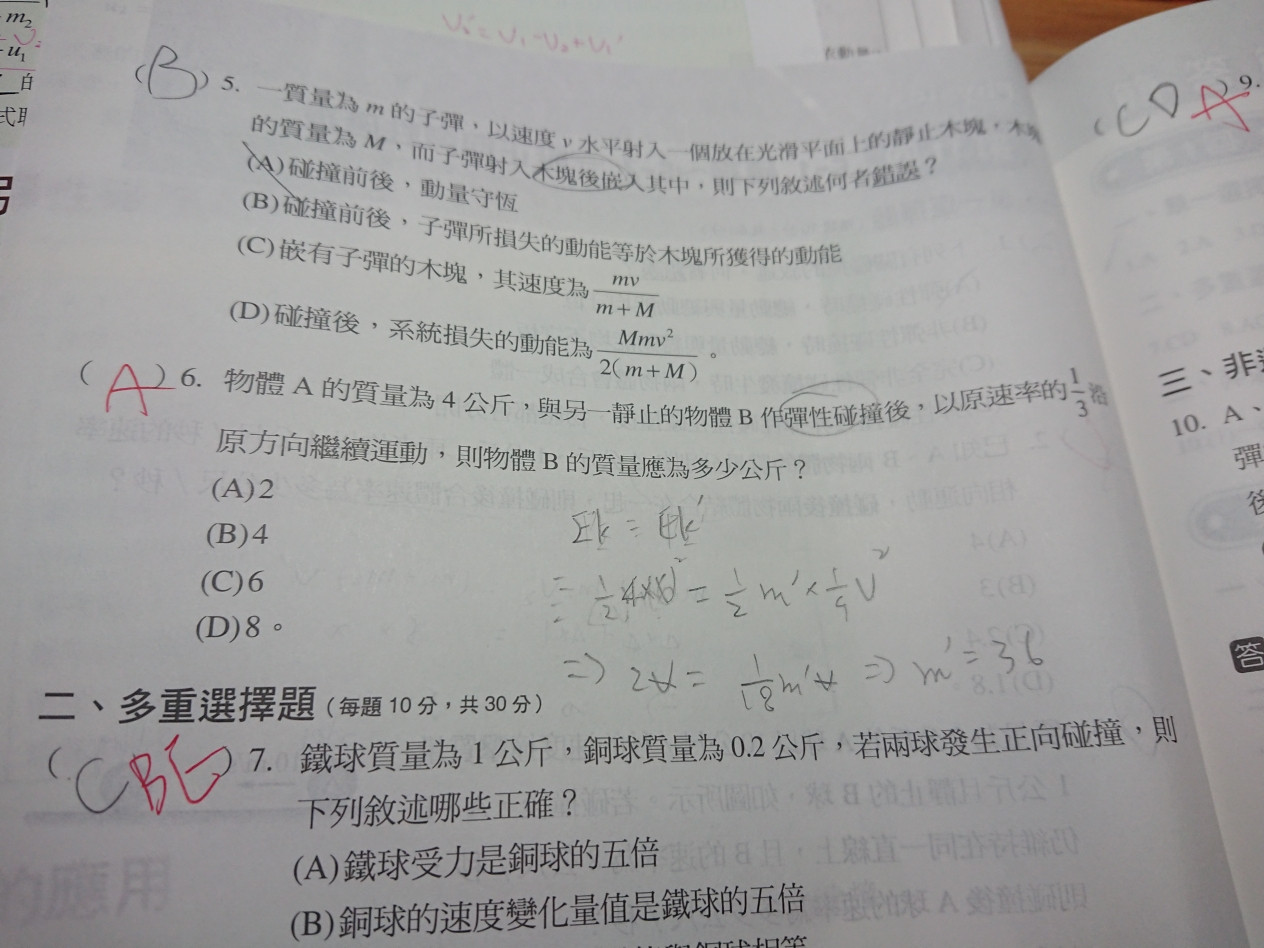 m₂
u₁
的
V₂' = V₁ - V₂ + V₁'
(B) 5. 一質量為 m 的子彈,以速度 v 水平射入一個放在光滑平面上的靜止木塊,木塊
的質量為 M,而子彈射入木塊後嵌入其中,則下列敘述何者錯誤?
(A)碰撞前後,動量守恆
(B)碰撞前後,子彈所損失的動能等於木塊所獲得的動能
(C)嵌有子彈的木塊,其速度為 mv/(m+M)
(D)碰撞後,系統損失的動能為 Mmv²/2(m+M)。
(A) 6. 物體 A 的質量為 4 公斤,與另一靜止的物體 B 作彈性碰撞後,以原速率的 1/3 沿
原方向繼續運動,則物體 B 的質量應為多少公斤?
(A)2
(B)4
(C)6
(D)8。
Ek = Ek'
= 1/2 m' × 1/9 V²
⇒ 2V = 1/18 m'V ⇒ m' = 36
二、多重選擇題(每題 10 分,共 30 分)
(C BE) 7. 鐵球質量為 1 公斤,銅球質量為 0.2 公斤,若兩球發生正向碰撞,則
下列敘述哪些正確?
(A)鐵球受力是銅球的五倍
(B)銅球的速度變化量值是鐵球的五倍
(CD A) 9.
三、非
10. A、
彈
後
答
的應用